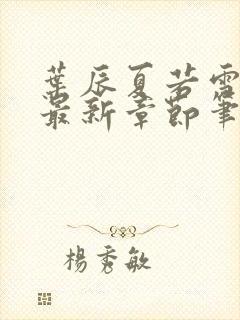 葉辰夏若雪
最新章節筆
楊秀敏